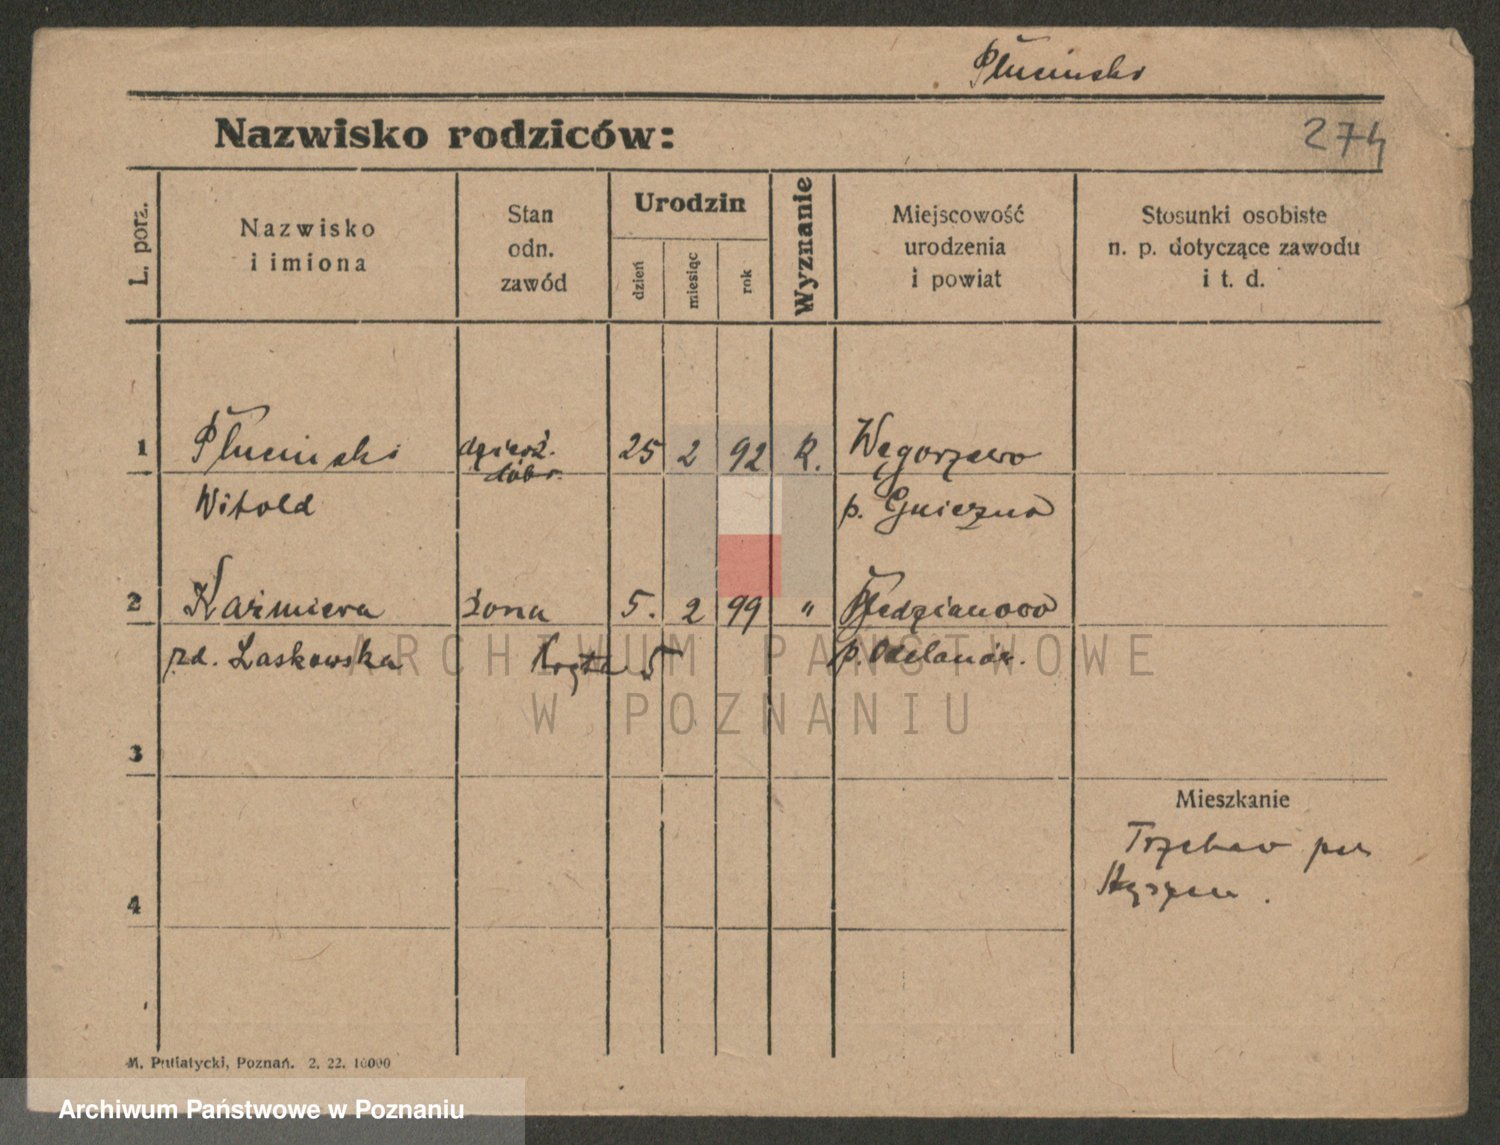 Pluciński
Nazwisko rodziców:
274
L. porz.
Nazwisko
i imiona
Stan
odn.
zawód
Urodzin
dzień
miesiąc
rok
Wyznanie
Miejscowość
urodzenia
i powiat
Stosunki osobiste
n. p. dotyczące zawodu
i t. d.
1 Pluciński dzierż. 25 2 92 R. Węgorzewo
dóbr.
Witold p. Gniezno
2 Kaźmiera żona 5. 2 99 "
zd. Laskowska 5 p. Odolanów.
3
Mieszkanie
4
M. Putiatycki, Poznań. 2. 22. 10000
ARCHIWUM PAŃSTWOWE
W POZNANIU
Archiwum Państwowe w Poznaniu